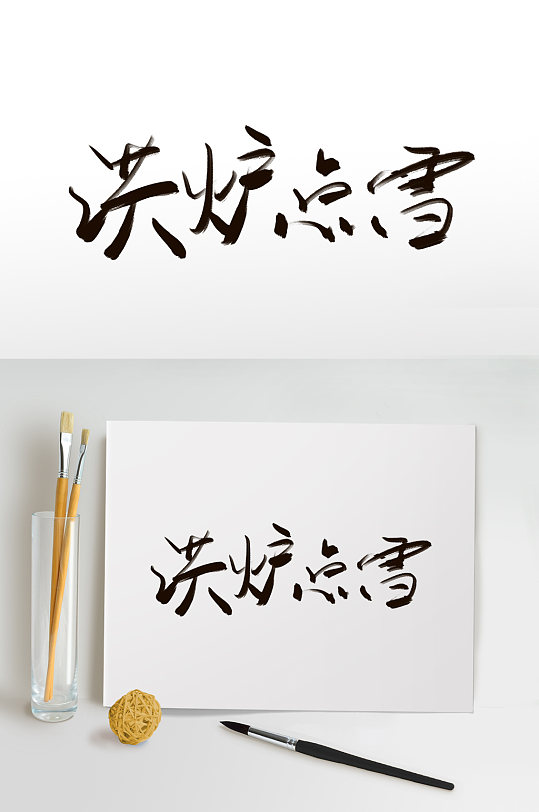 洪炉点雪
洪炉点雪